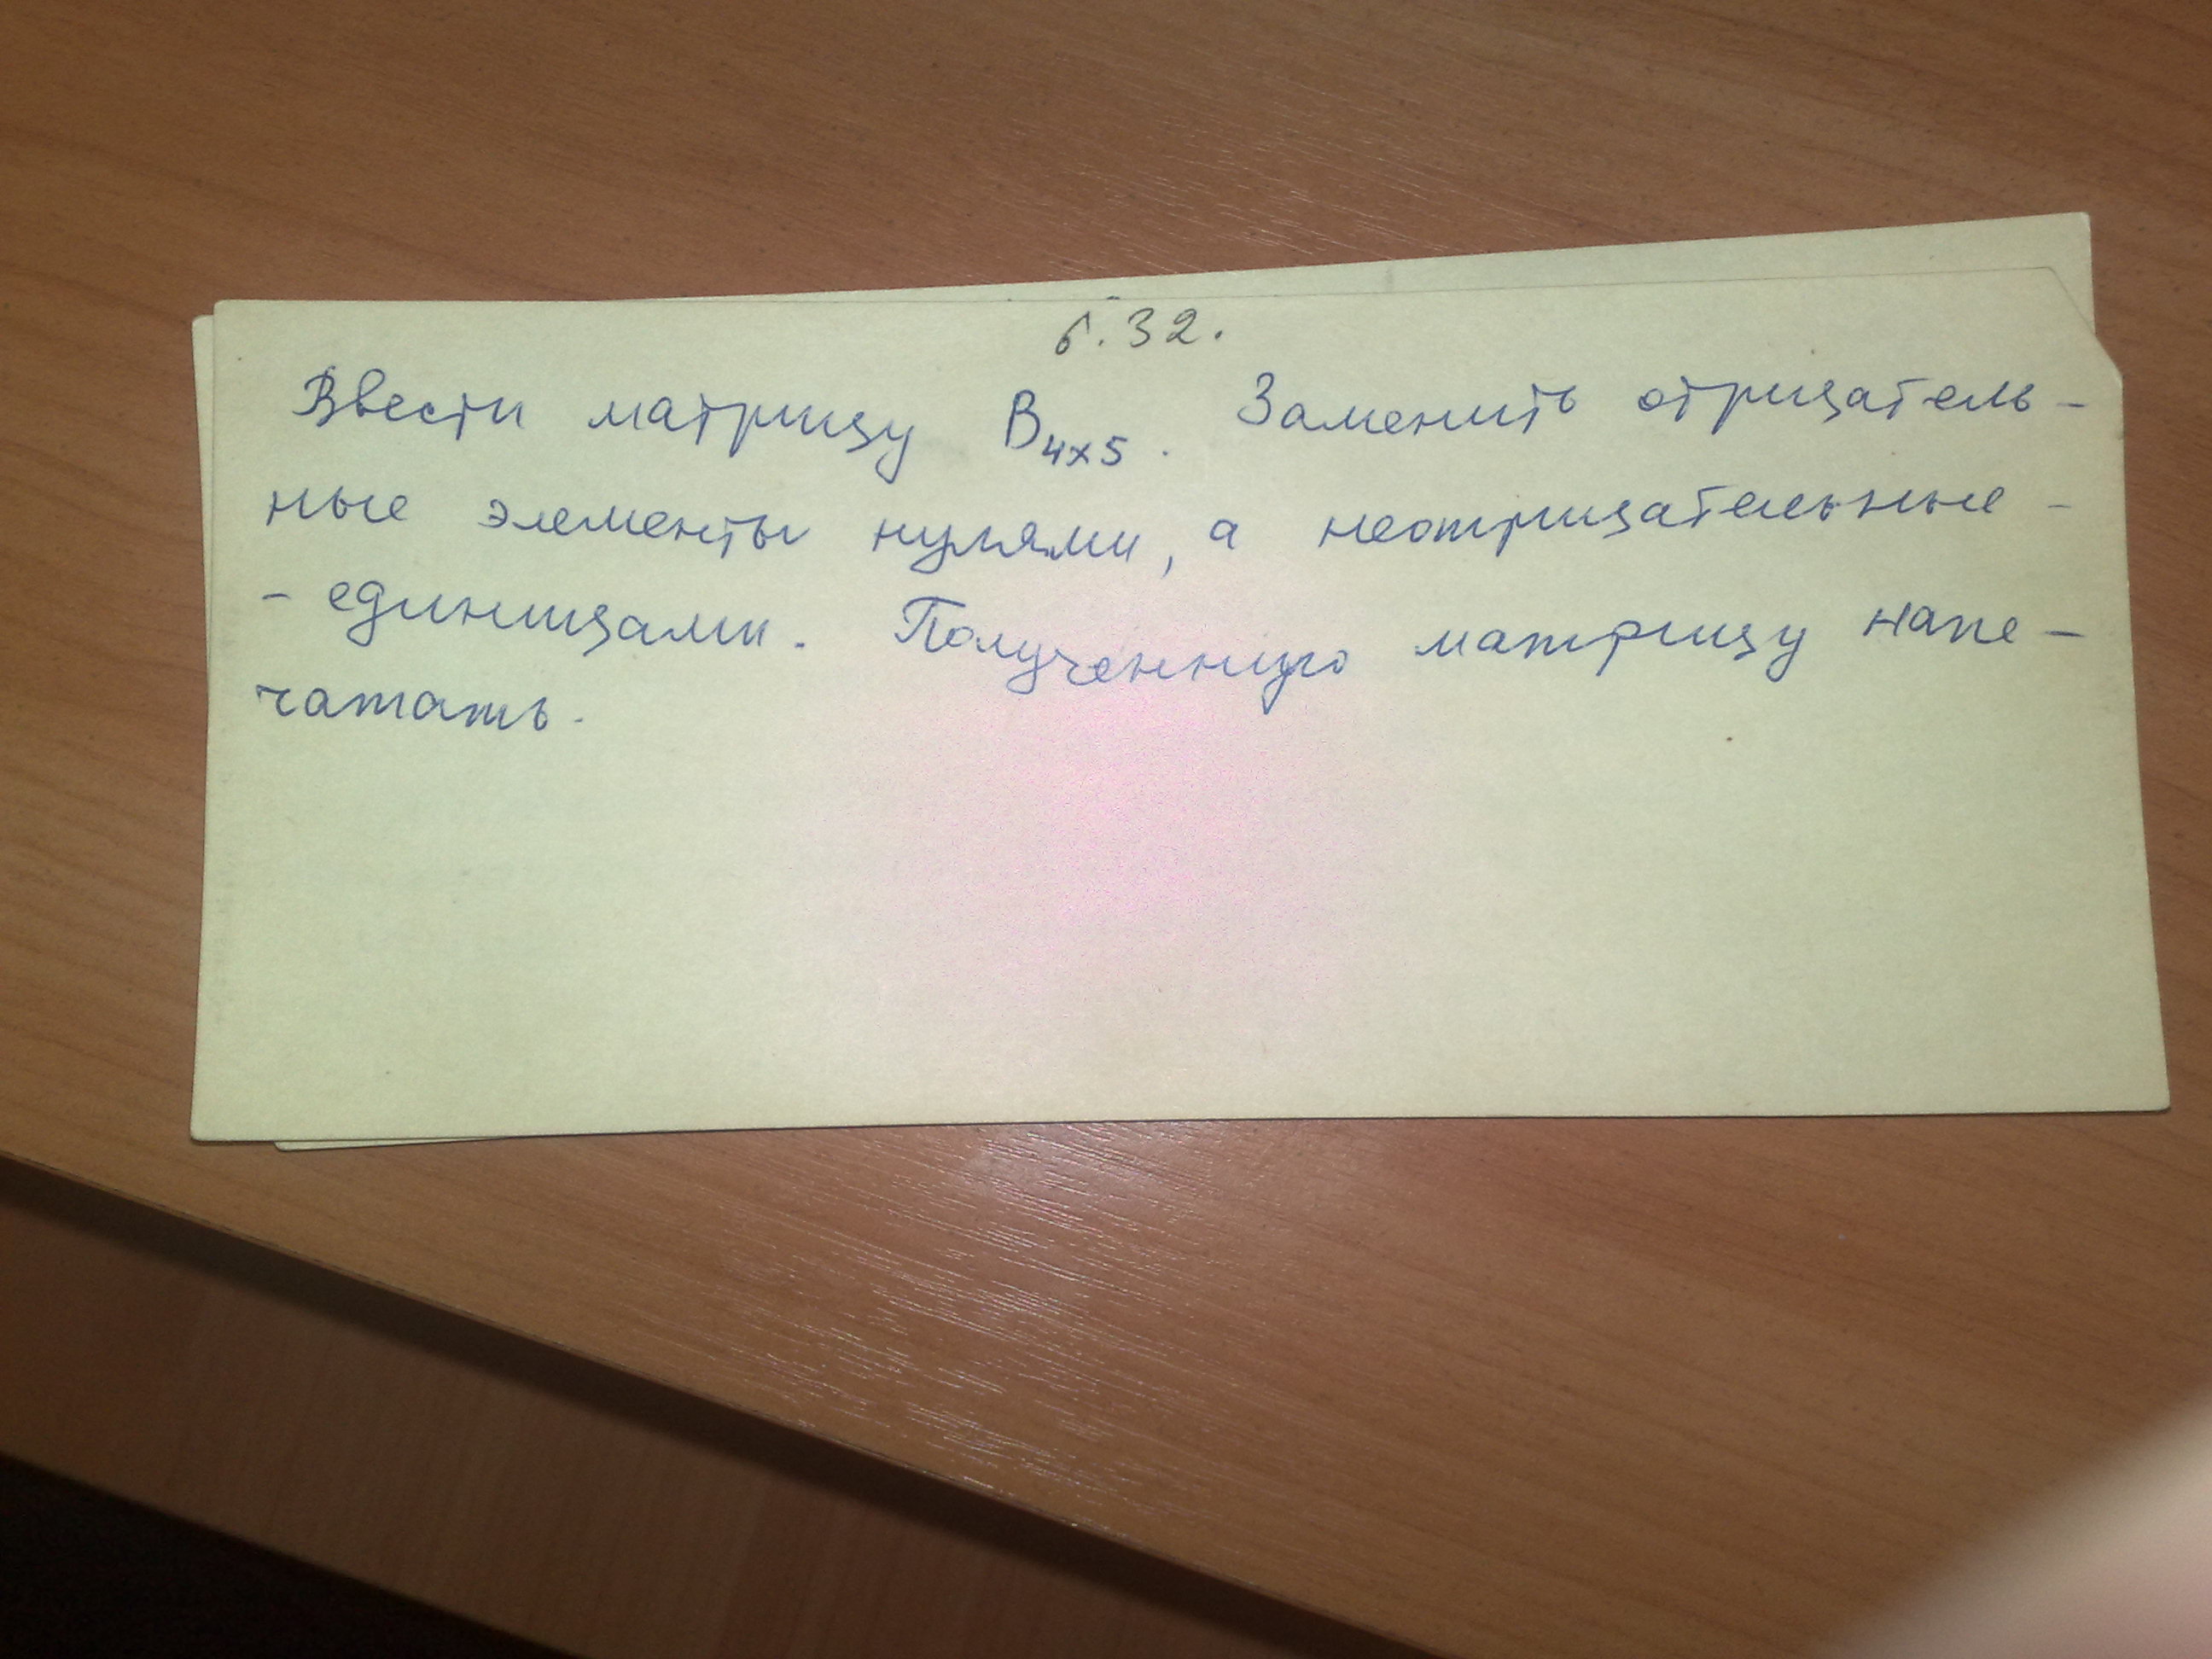 6.32.
Ввести матрицу B4x5. Заменить отрицатель-
ные элементы нулями, а неотрицательные -
- единицами. Полученную матрицу напе-
чатать.